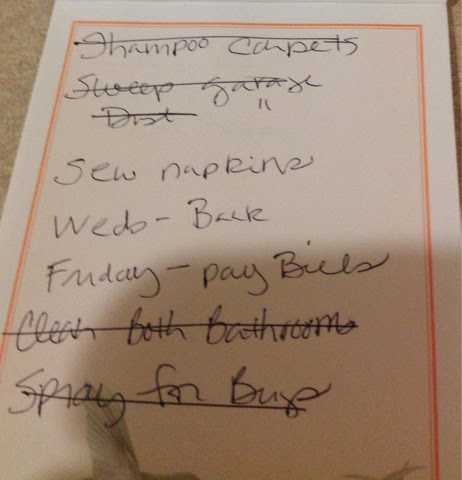 Shampoo carpets
Sweep garage
Dust "
Sew napkins
Weds - Back
Friday - pay Bills
Clean Both Bathrooms
Spray for Bugs